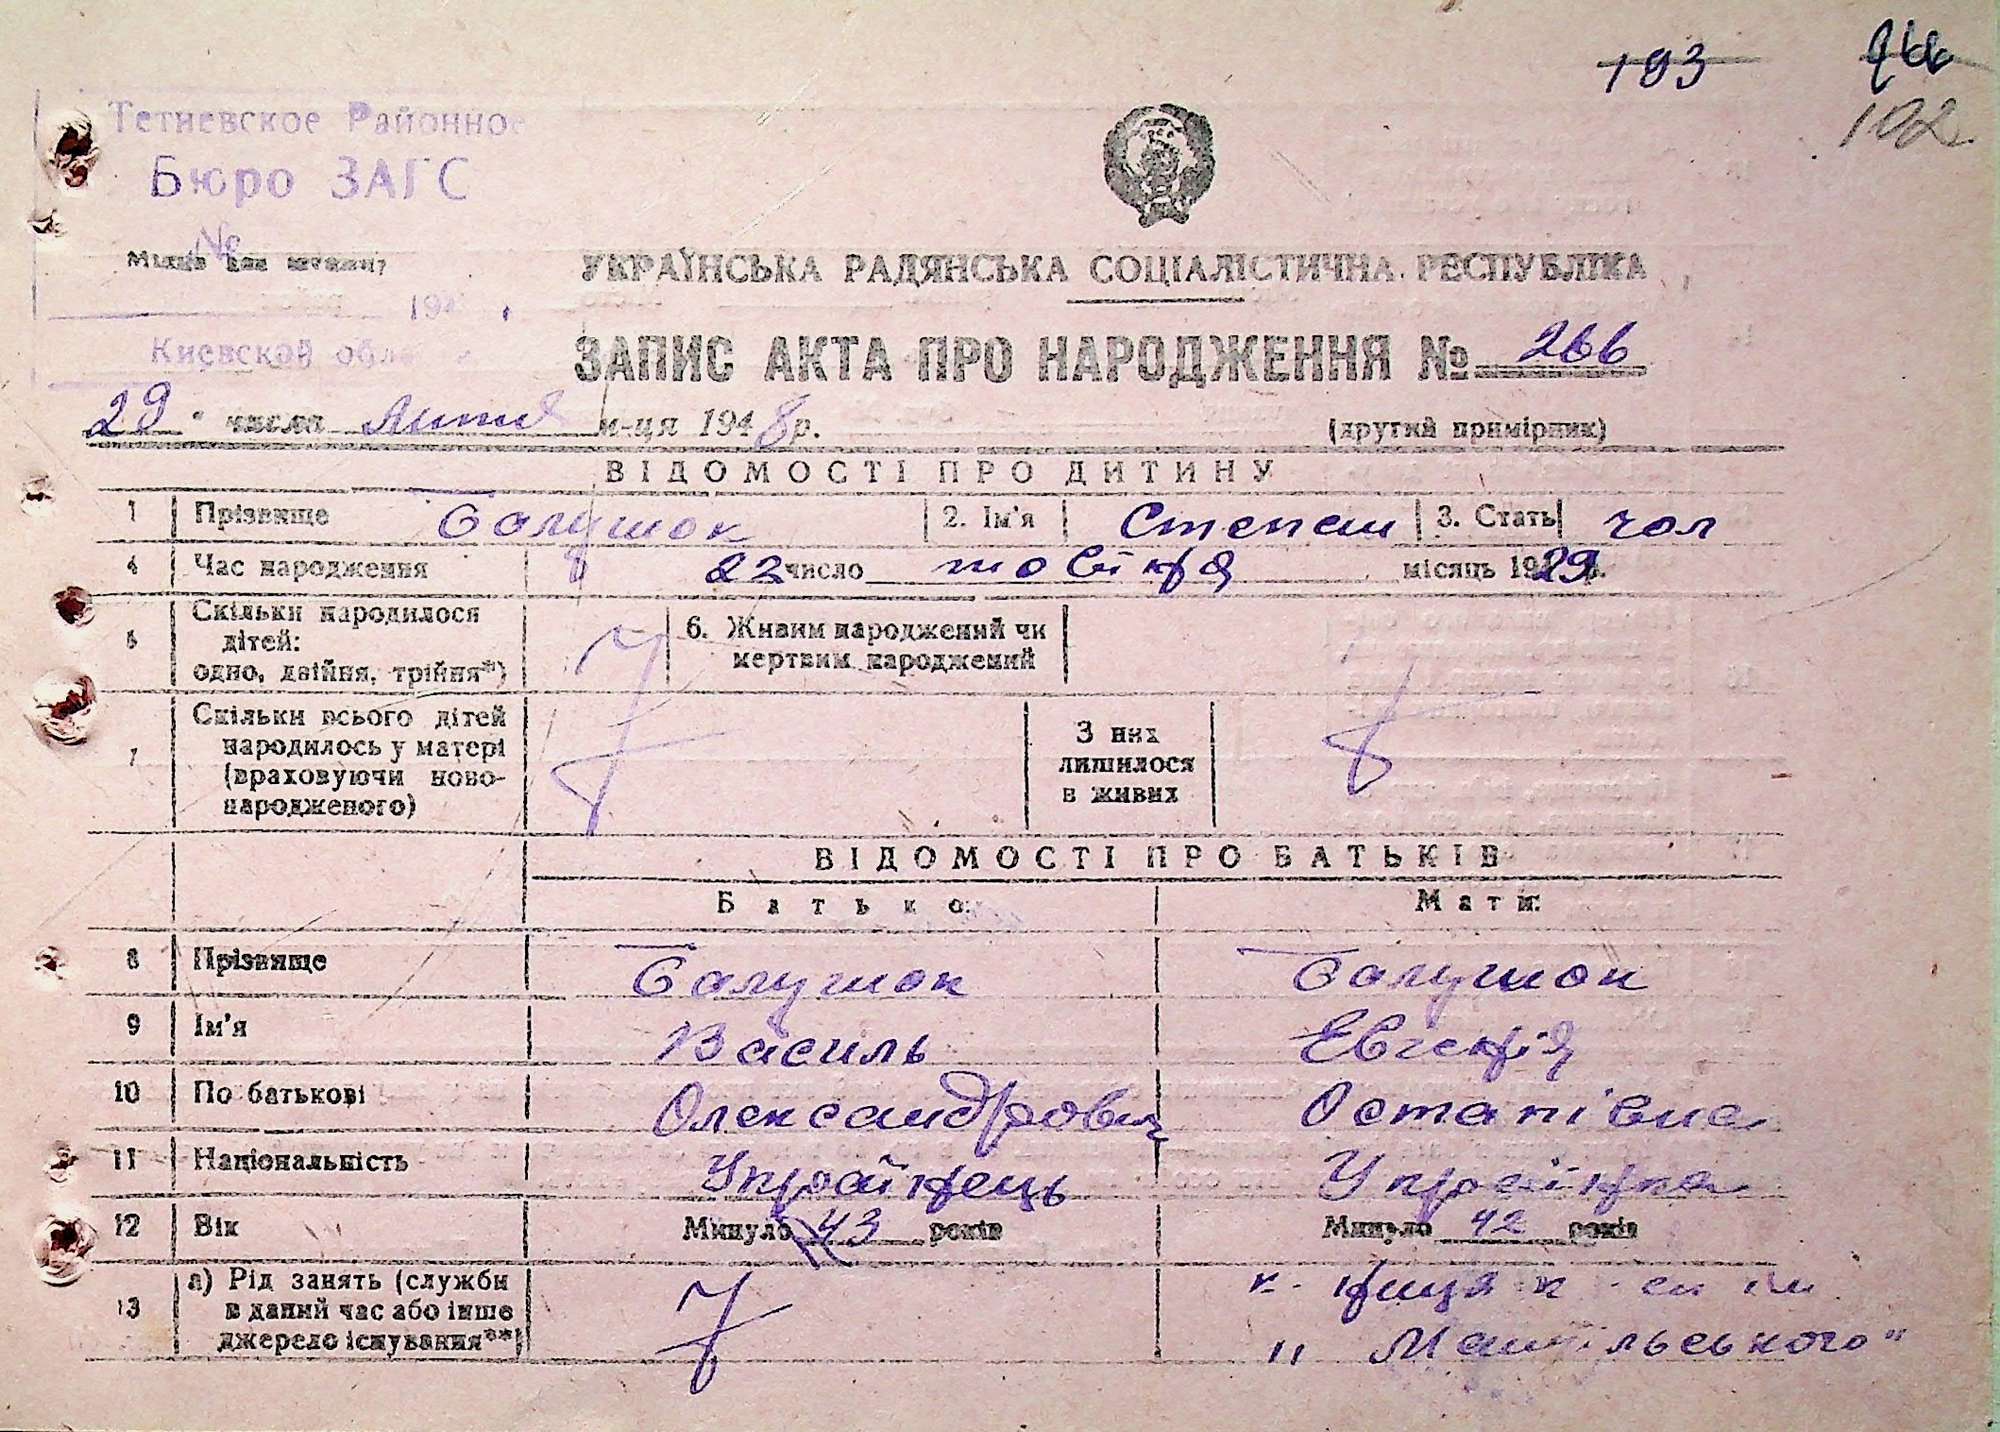 193 266
102
Тетиевское Районное
Бюро ЗАГС
№
УКРАЇНСЬКА РАДЯНСЬКА СОЦІАЛІСТИЧНА РЕСПУБЛІКА
194
Киевской обл
ЗАПИС АКТА ПРО НАРОДЖЕННЯ № 266
29 " числа м-ця 1948 р. (другий примірник)
ВІДОМОСТІ ПРО ДИТИНУ
1 Прізвище Балушок 2. Ім'я Степан 3. Стать чол
4 Час народження 22 число місяць 1929 р.
5 Скільки народилося дітей: одно, двійня, трійня*) 6. Живим народжений чи мертвим народжений
7 Скільки всього дітей народилось у матері (враховуючи ново-народженого) З них лишилося в живих
ВІДОМОСТІ ПРО БАТЬКІВ
Батько: Мати:
8 Прізвище Балушок Балушок
9 Ім'я Василь Евгенія
10 По батькові Олександрович Остапівна
11 Національність Українець Українка
12 Вік Минуло 43 років Минуло 42 років
13 а) Рід занять (служби в даний час або інше джерело існування**)